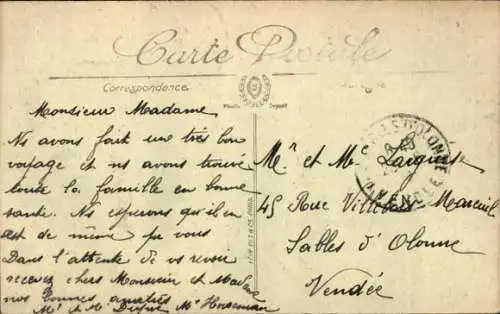 Carte Postale
Correspondence
Monsieur Madame
Ns avons fait une très bon
voyage et ns avons trouvé
toute la famille en bonne
santé. Ns esperons qu'il en
est de même pr vous
Dans l'attente de vs revoir
recevez chers Monsieur et Madame
nos bonnes amitiés
Mr et Me
Mr et Me
45 Rue Villebois-Mareuil
Sables d'Olonne
Vendée